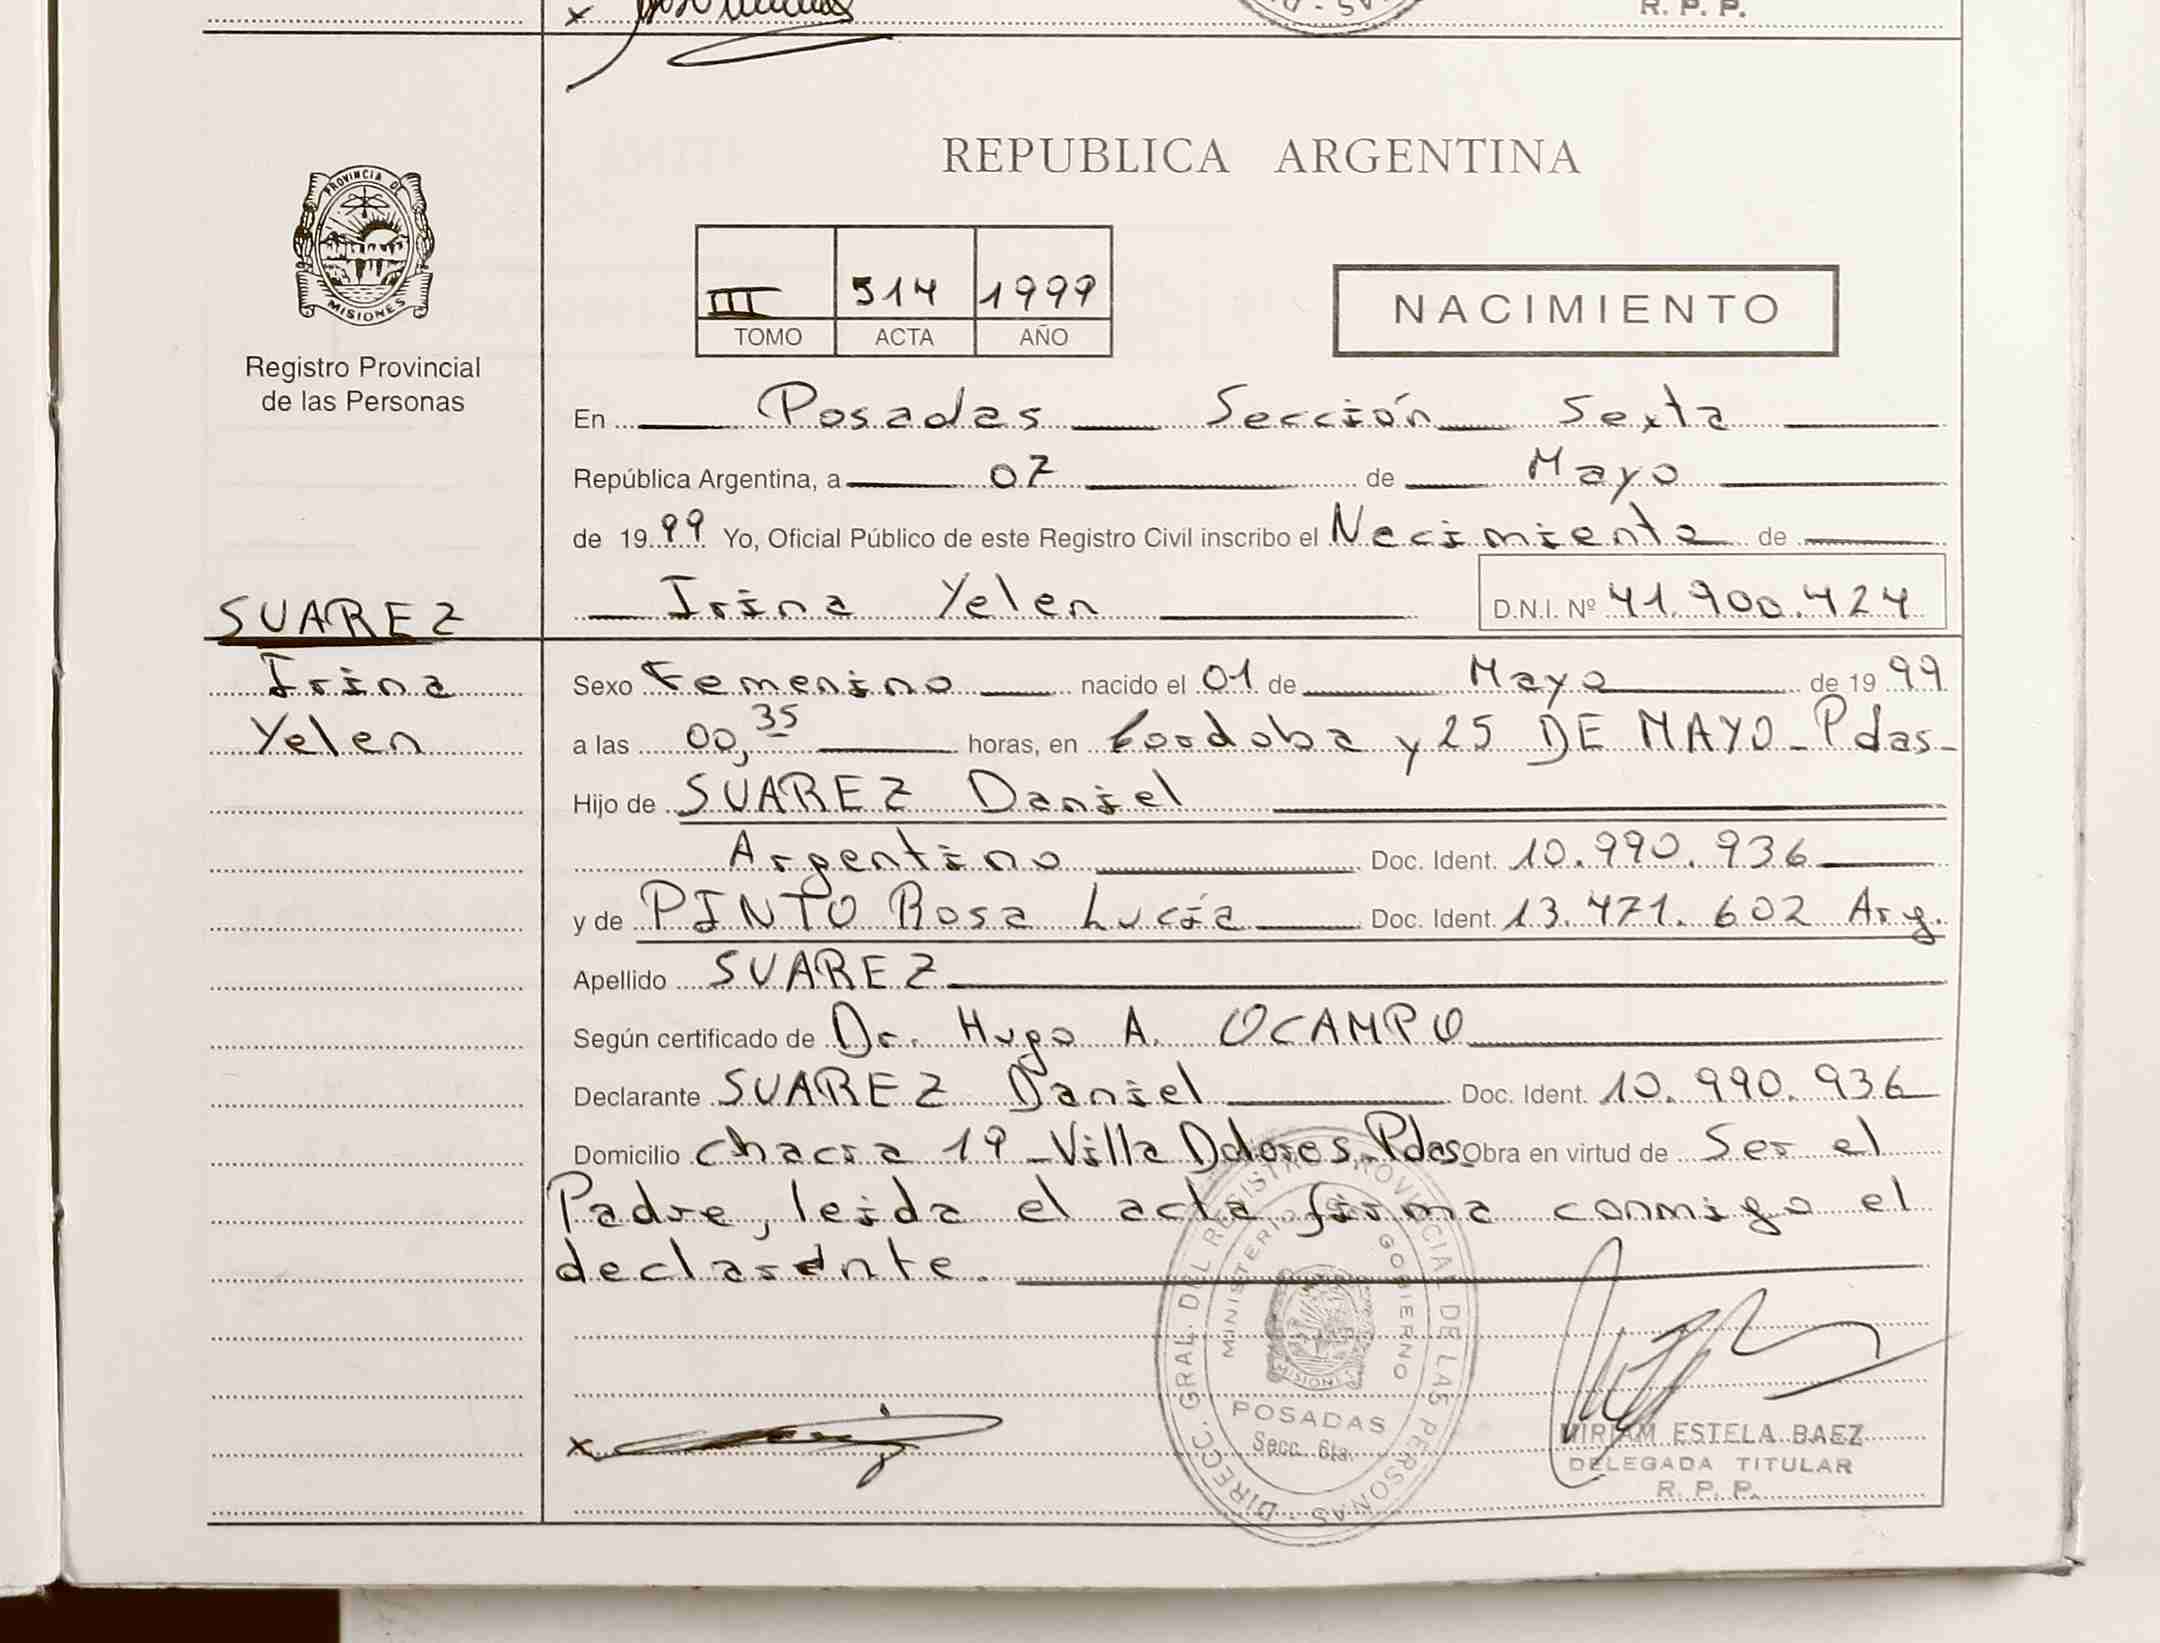 R. P. P.
REPUBLICA ARGENTINA
PROVINCIA DE
MISIONES
Registro Provincial
de las Personas
III 514 1999
TOMO ACTA AÑO
NACIMIENTO
En Posadas Sección Sexta
República Argentina, a 07 de Mayo
de 1999 Yo, Oficial Público de este Registro Civil inscribo el Nacimiento de
Irina Yelen D.N.I. Nº 41.900.424
SUAREZ
Irina
Yelen
Sexo Femenino nacido el 01 de Mayo de 1999
a las 00,35 horas, en Cordoba y 25 DE MAYO - Pdas -
Hijo de SUAREZ Daniel
Argentino Doc. Ident. 10.990.936
y de PINTO Rosa Lucía Doc. Ident. 13.471.602 Arg.
Apellido SUAREZ
Según certificado de Dr. Hugo A. OCAMPO
Declarante SUAREZ Daniel Doc. Ident. 10.990.936
Domicilio Chacra 19 - Villa Dolores - Pdas - Obra en virtud de Ser el
Padre, leida el acta firma conmigo el
declarante.
DIRECC. GRAL. DEL REGISTRO PROVINCIAL DE LAS PERSONAS
MINISTERIO DE GOBIERNO
MISIONES
POSADAS
Secc. 6ta.
x
MIRIAM ESTELA BAEZ
DELEGADA TITULAR
R. P. P.